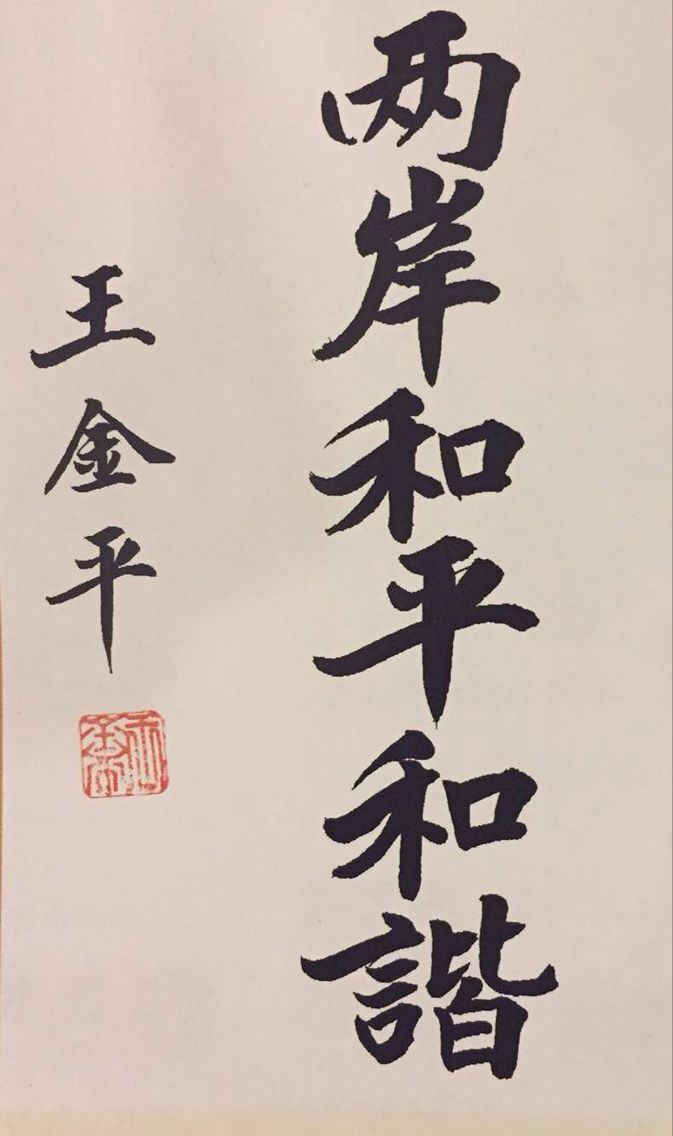 两岸和平和諧
王金平